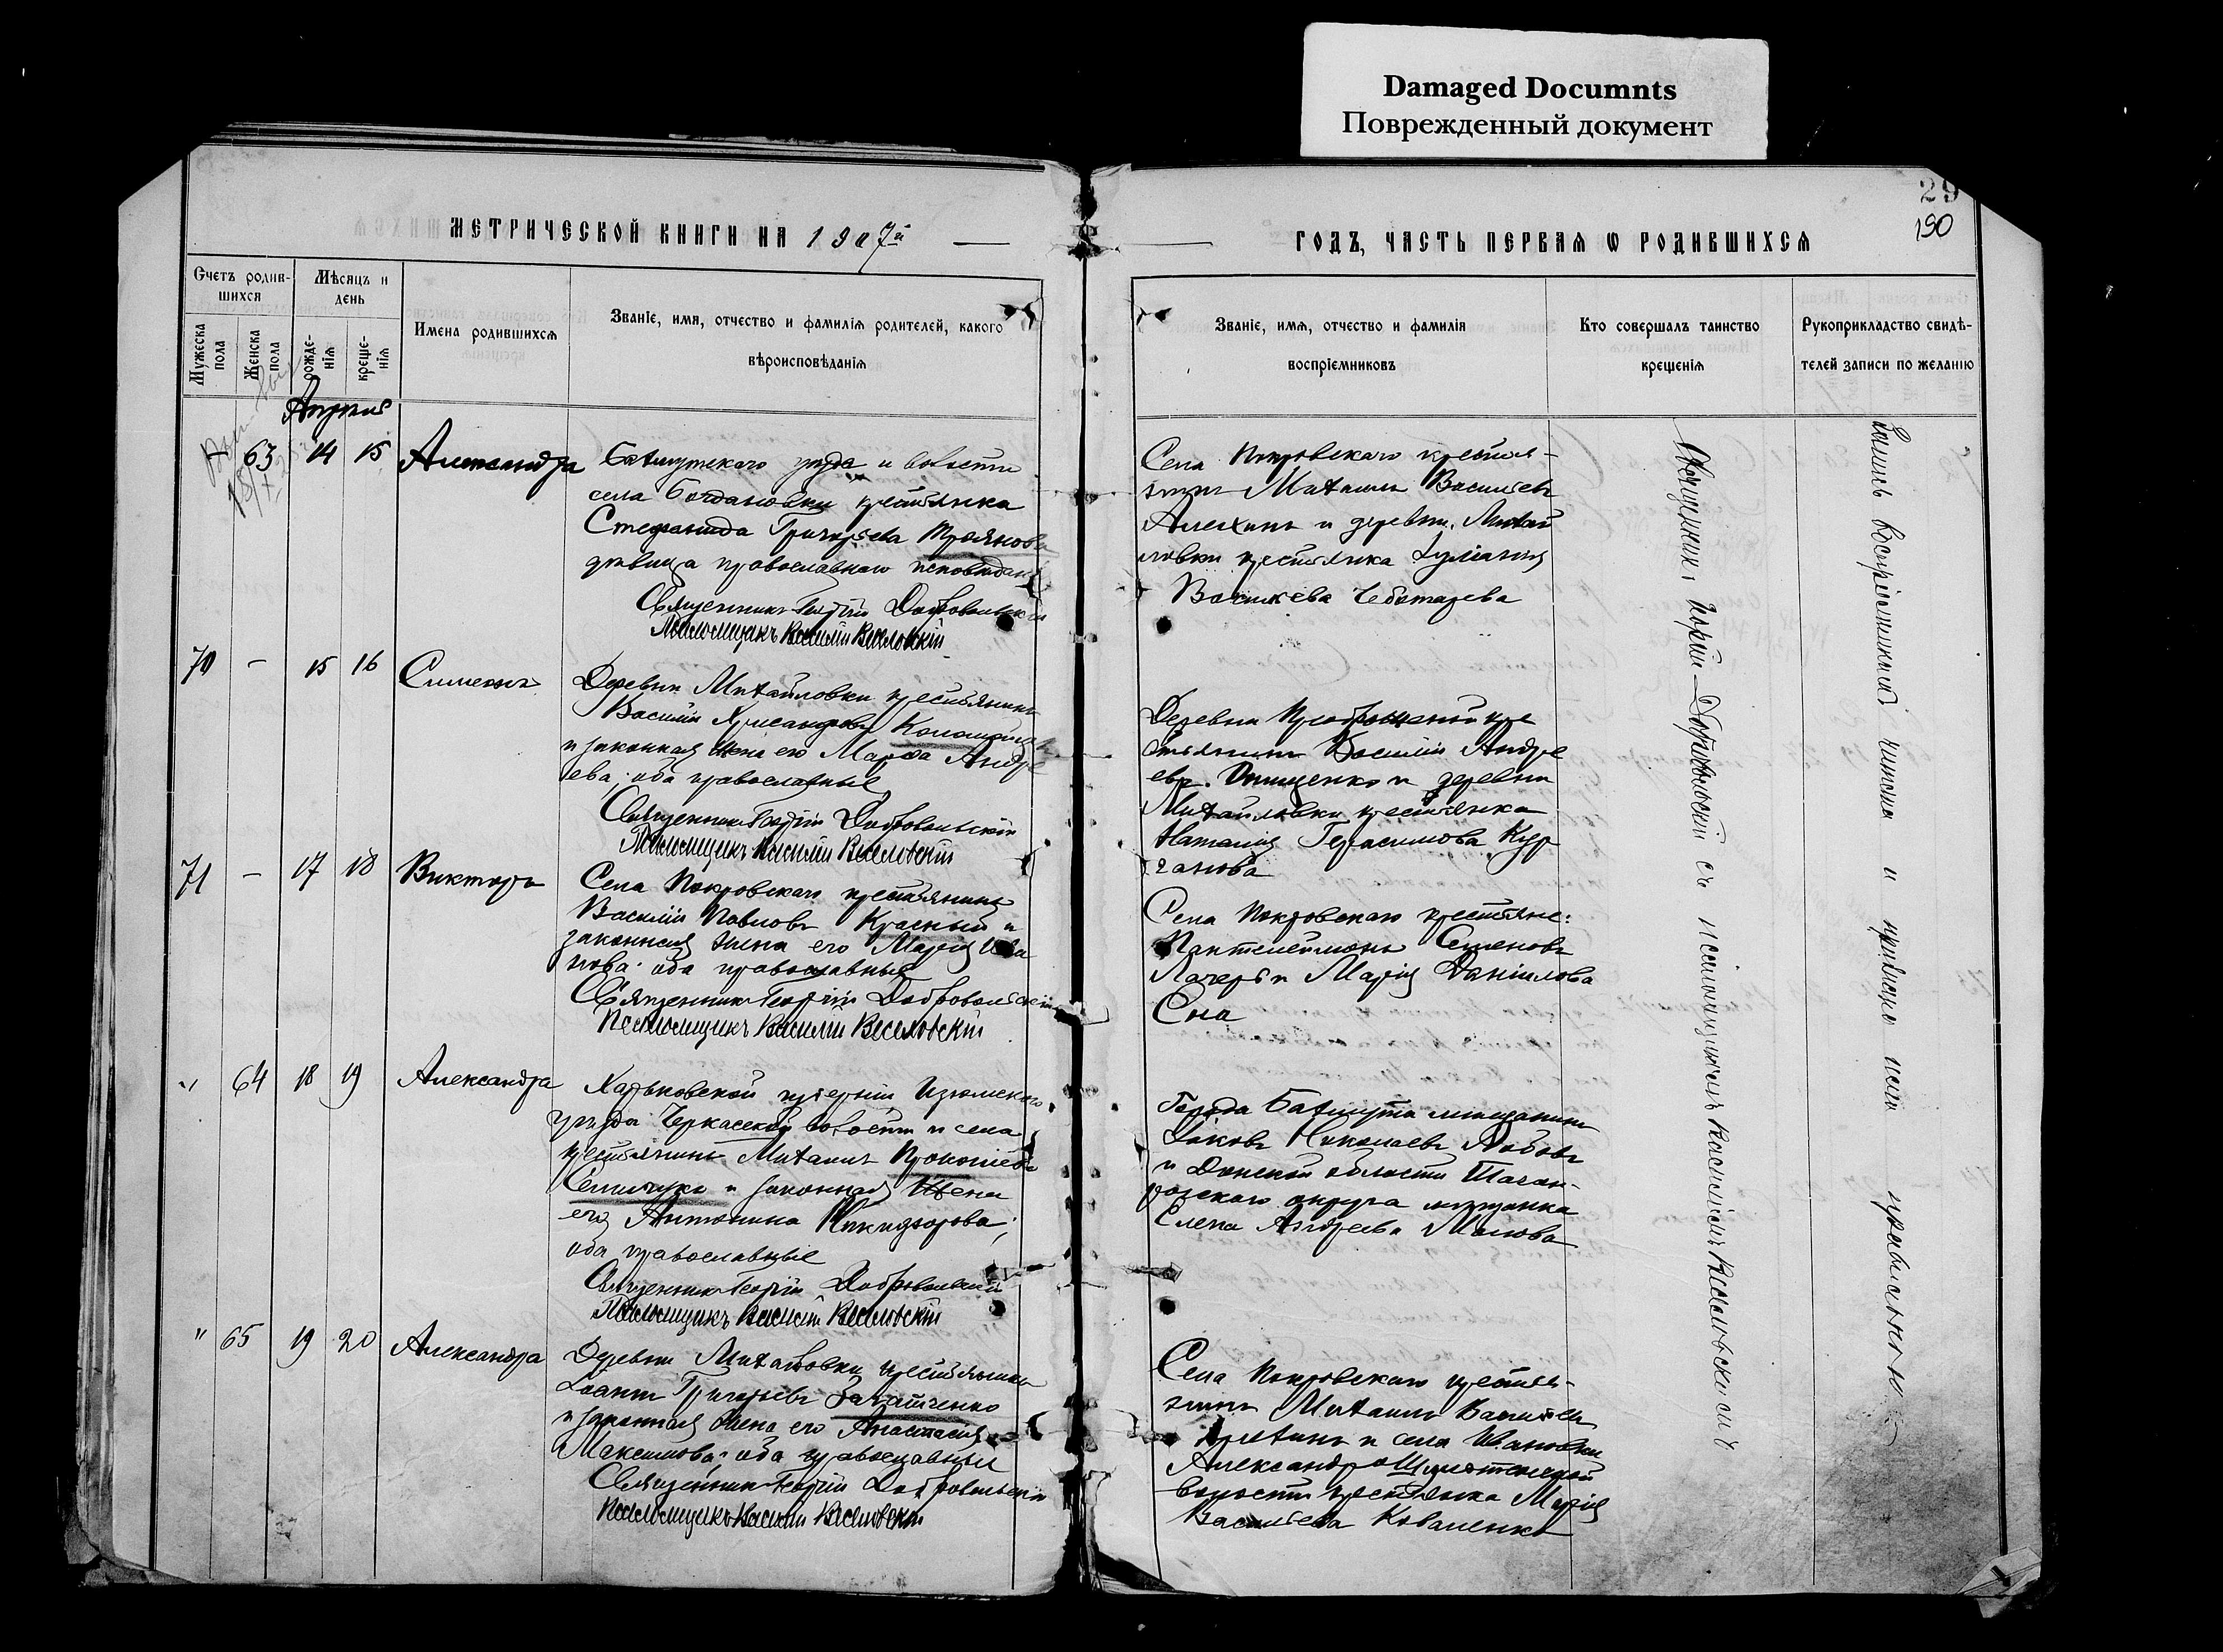 Damaged Documnts
Поврежденный документ
29
190
МЕТРИЧЕСКОЙ КНИГИ НА 1907й
ГОДЪ, ЧАСТЬ ПЕРВАЯ Ѡ РОДИВШИХСЯ
Счетъ родив-
шихся
Мужеска
пола
Женска
пола
Мѣсяцъ и
день
рожде-
нія
креще-
нія
Имена родившихся
Званіе, имя, отчество и фамилія родителей, какого
вѣроисповѣданія
Званіе, имя, отчество и фамилія
воспріемниковъ
Кто совершалъ таинство
крещенія
Рукоприкладство свидѣ-
телей записи по желанію
63 14 15 Александра
Бахмутскаго уѣзда и волости
села Богдановки крестьянка
Стефанида Григорьева
дѣвица православнаго
Священникъ Георгій Добровольскій
Псаломщикъ Василій Веселовскій
Села Покровскаго крестья-
нинъ Михаилъ Васильевъ
Алехинъ и деревни Михай
ловки крестьянка Іуліанія
Васильева Чеботарева
70 - 15 16 Симеонъ
Деревни Михайловки крестьянинъ
Василій
и законная жена его Марфа Андре
ева; оба православные
Священникъ Георгій Добровольскій
Псаломщикъ Василій Веселовскій
Деревни кре
стьянинъ Василій Андре
евъ Онищенко и деревни
Михайловки крестьянка
Наталія Герасимова Кур
ганова
71 - 17 18 Викторъ
Села Покровскаго крестьянинъ
Василій Павловъ Красный и
законная жена его Марія Ива
нова; оба православные
Священникъ Георгій Добровольскій
Псаломщикъ Василій Веселовскій
Села Покровскаго крестьяне:
Пантелеимонъ Семеновъ
и Марія Даніилова
Сна
" 64 18 19 Александра
Харьковской губерніи Изюмскаго
уѣзда Черкасской волости и села
крестьянинъ Михаилъ Прокопіевъ
и законная жена
его Антонина Никифорова;
оба православные
Священникъ Георгій Добровольскій
Псаломщикъ Василій Веселовскій
Города Бахмута мѣщанинъ
Іаковъ Николаевъ
и Донской области Таган-
рогскаго округа мѣщанка
Елена Андреева
" 65 19 20 Александра
Деревни Михайловки крестьянинъ
Іоаннъ Григорьевъ
и законная жена его Анастасія
Максимова; оба православные
Священникъ Георгій Добровольскій
Псаломщикъ Василій Веселовскій
Села Покровскаго крестья-
нинъ Михаилъ Васильевъ
и села Ивановки
Александро
волости крестьянка Марія
Васильева Коваленко
Священникъ Георгій Добровольскій съ псаломщикомъ Василіемъ Веселовскимъ